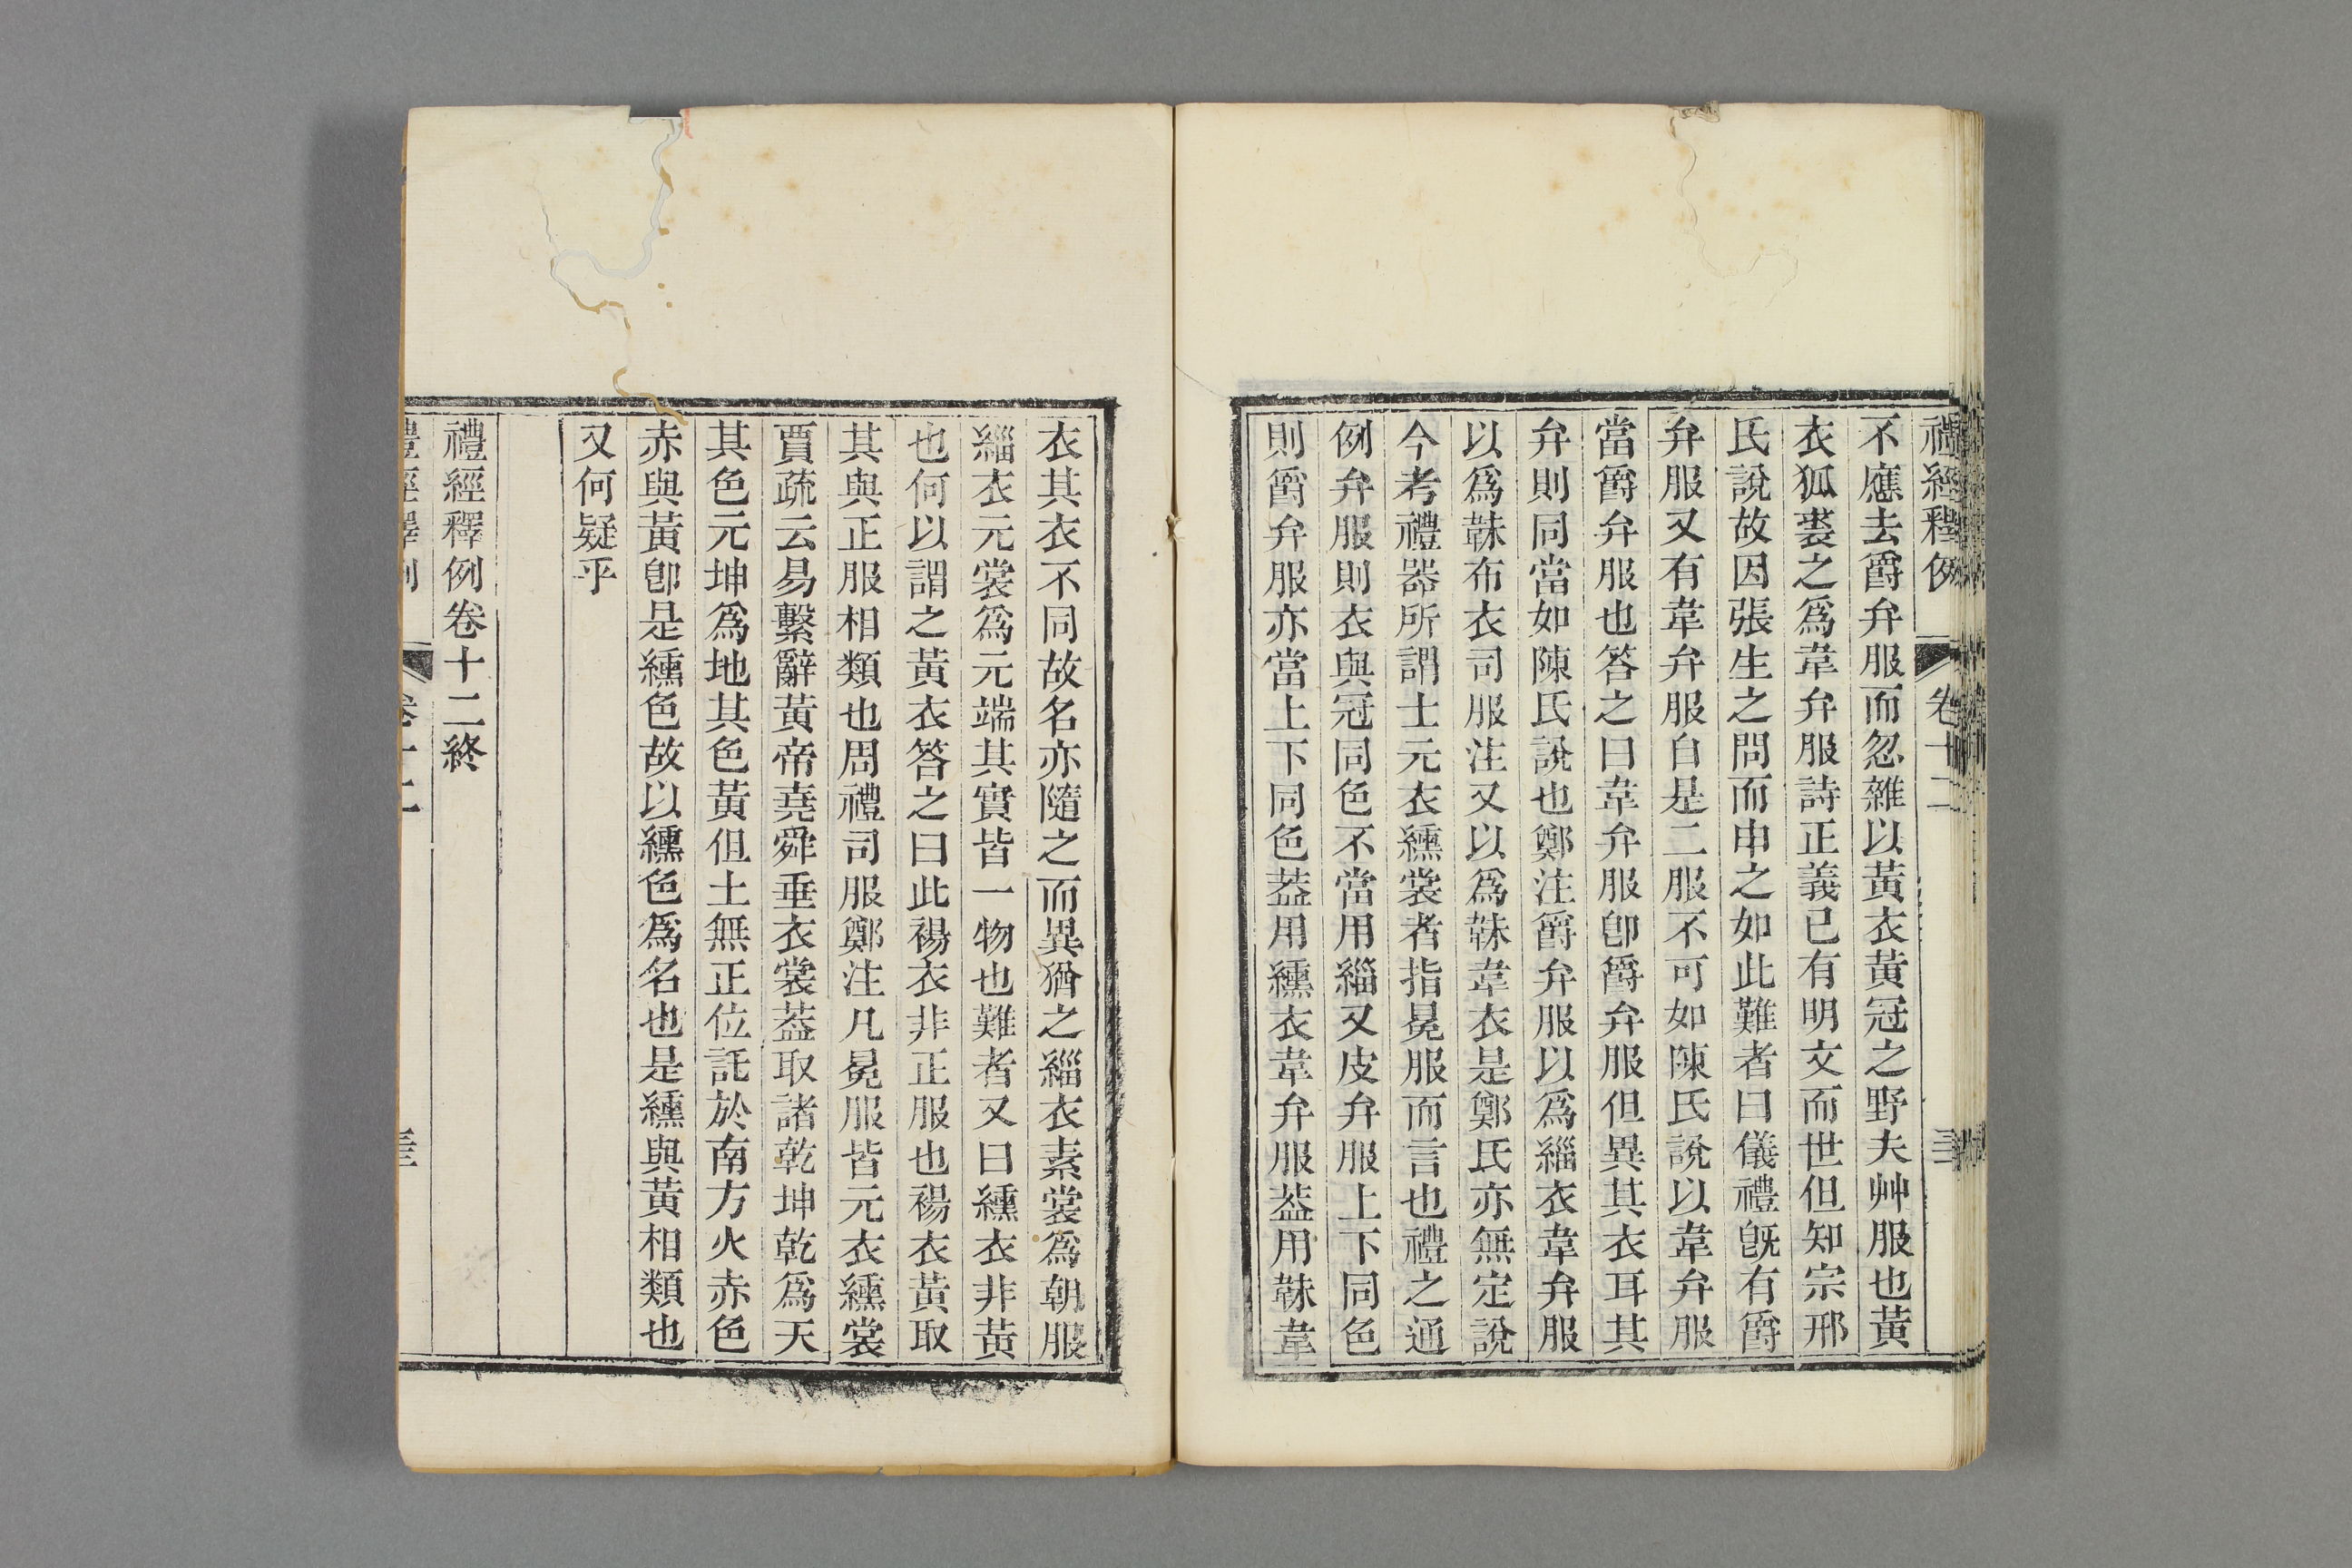 禮經釋例 卷十二
不應去爵弁服而忽雜以黃衣黃冠之野夫艸服也黃
衣狐裘之爲韋弁服詩正義已有明文而世但知宗邢
氏說故因張生之問而申之如此難者曰儀禮旣有爵
弁服又有韋弁服自是二服不可如陳氏說以韋弁服
當爵弁服也答之曰韋弁服卽爵弁服但異其衣耳其
弁則同當如陳氏說也鄭注爵弁服以爲緇衣韋弁服
以爲韎布衣司服注又以爲韎韋衣是鄭氏亦無定說
今考禮器所謂士元衣纁裳者指冕服而言也禮之通
例弁服則衣與冠同色不當用緇又皮弁服上下同色
則爵弁服亦當上下同色葢用纁衣韋弁服葢用韎韋
衣其衣不同故名亦隨之而異猶之緇衣素裳爲朝服
緇衣元裳爲元端其實皆一物也難者又曰纁衣非黃
也何以謂之黃衣答之曰此裼衣非正服也裼衣黃取
其與正服相類也周禮司服鄭注凡冕服皆元衣纁裳
賈疏云易繫辭黃帝堯舜垂衣裳葢取諸乾坤乾爲天
其色元坤爲地其色黃但土無正位託於南方火赤色
赤與黃卽是纁色故以纁色爲名也是纁與黃相類也
又何疑乎
禮經釋例卷十二終
禮經釋例 卷十二